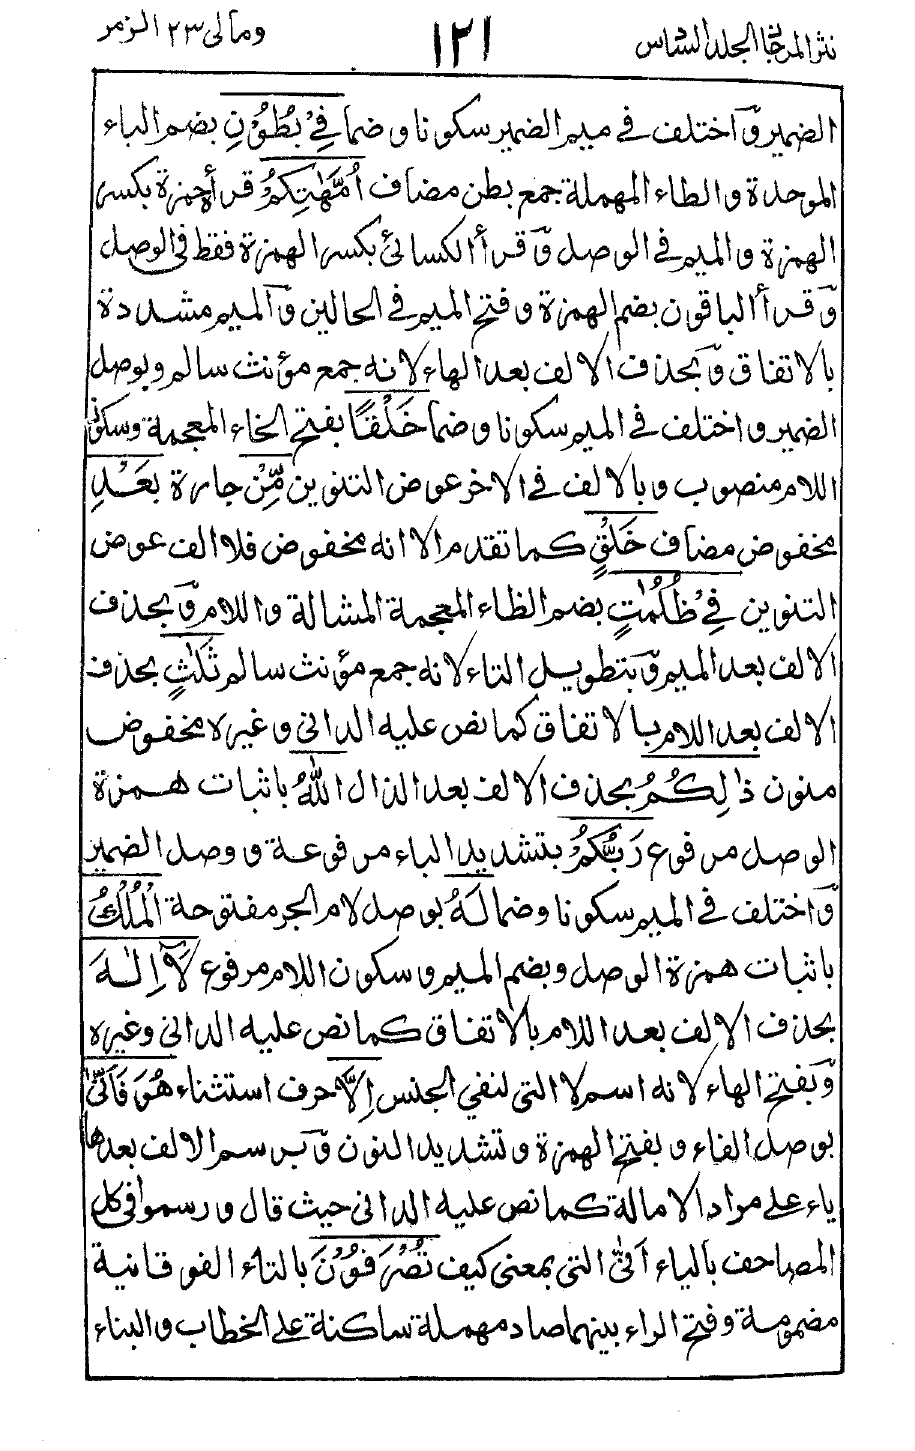 نثر المرجان الجلد السادس ١٢١ ومالى ٢٣ الزمر
الضمير وّاختلف فى ميم الضمير سكونا و ضما فِىْ بُطُوْنِ بضم الباء
الموحدة و الطاء المهملة جمع بطن مضاف اُمَّهٰتِكُمْ قرأ حمزة بكسر
الهمزة و الميم فى الوصل وّقرأ الكسائى بكسر الهمزة فقط فى الوصل
وّقرأ الباقون بضم الهمزة و فتح الميم فى الحالين وّالميم مشددة
بالاتفاق وّبحذف الالف بعد الهاء لانه جمع مؤنث سالم وبوصل
الضمير و اختلف فى الميم سكونا و ضما خَلْقًا بفتح الخاء المعجمة وسكون
اللام منصوب و بالالف فى الاخر عوض التنوين مِّنْ جارة بَعْدِ
مخفوض مضاف خَلْقٍ كما تقدم الا انه مخفوض فلا الف عوض
التنوين فِىْ ظُلُمٰتٍ بضم الظاء المعجمة المشالة و اللام وّبحذف
الالف بعد الميم وّبتطويل التاء لانه جمع مؤنث سالم ثَلٰثٍ بحذف
الالف بعد اللام بالاتفاق كما نص عليه الدانى و غيره مخفوض
منون ذٰلِكُمُ بحذف الالف بعد الذال اللّٰهُ باثبات همزة
الوصل مرفوع رَبُّكُمْ بتشديد الباء مرفوعة و وصل الضمير
وّاختلف فى الميم سكونا و ضما لَهُ بوصل لام الجر مفتوحة الْمُلْكُ
باثبات همزة الوصل و بضم الميم و سكون اللام مرفوع لَآ اِلٰهَ
بحذف الالف بعد اللام بالاتفاق كما نص عليه الدانى وغيره
وّبفتح الهاء لانه اسم لا التى لنفى الجنس اِلَّا حرف استثناء هُوَ فَاَنّٰى
بوصل الفاء و بفتح الهمزة و تشديد النون وّبرسم الالف بعدها
ياء على مراد الامالة كما نص عليه الدانى حيث قال و رسموا فى كل
المصاحف بالياء اَنّٰى التى بمعنى كيف تُصْرَفُوْنَ بالتاء الفوقانية
مضمومة و فتح الراء بينهما صاد مهملة ساكنة على الخطاب و البناء